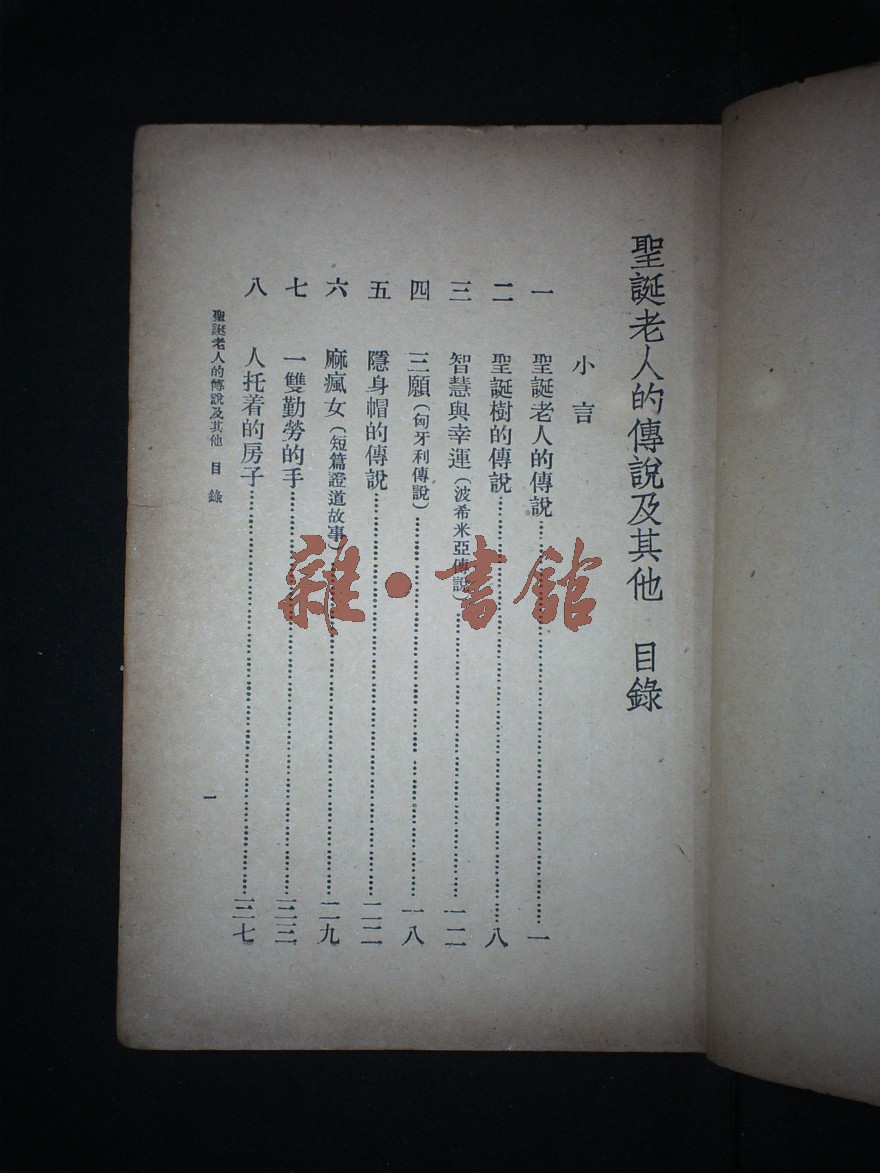 聖誕老人的傳說及其他 目錄
小言
一 聖誕老人的傳說……一
二 聖誕樹的傳說……八
三 智慧與幸運（波希米亞傳說）……一二
四 三願（匈牙利傳說）……一八
五 隱身帽的傳說……二二
六 麻瘋女（短篇證道故事）……二九
七 一雙勤勞的手……三三
八 人托着的房子……三七
聖誕老人的傳說及其他 目錄
一
雜·書館